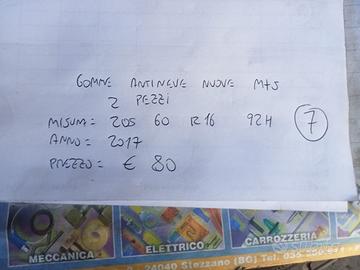 GOMME ANTINEVE NUOVE M+S
2 PEZZI
MISURA = 205 60 R16 92H
7
ANNO = 2017
PREZZO = € 80
MECCANICA
ELETTRICO
CARROZZERIA
24040 Stezzano (BG) Tel. 035
subito